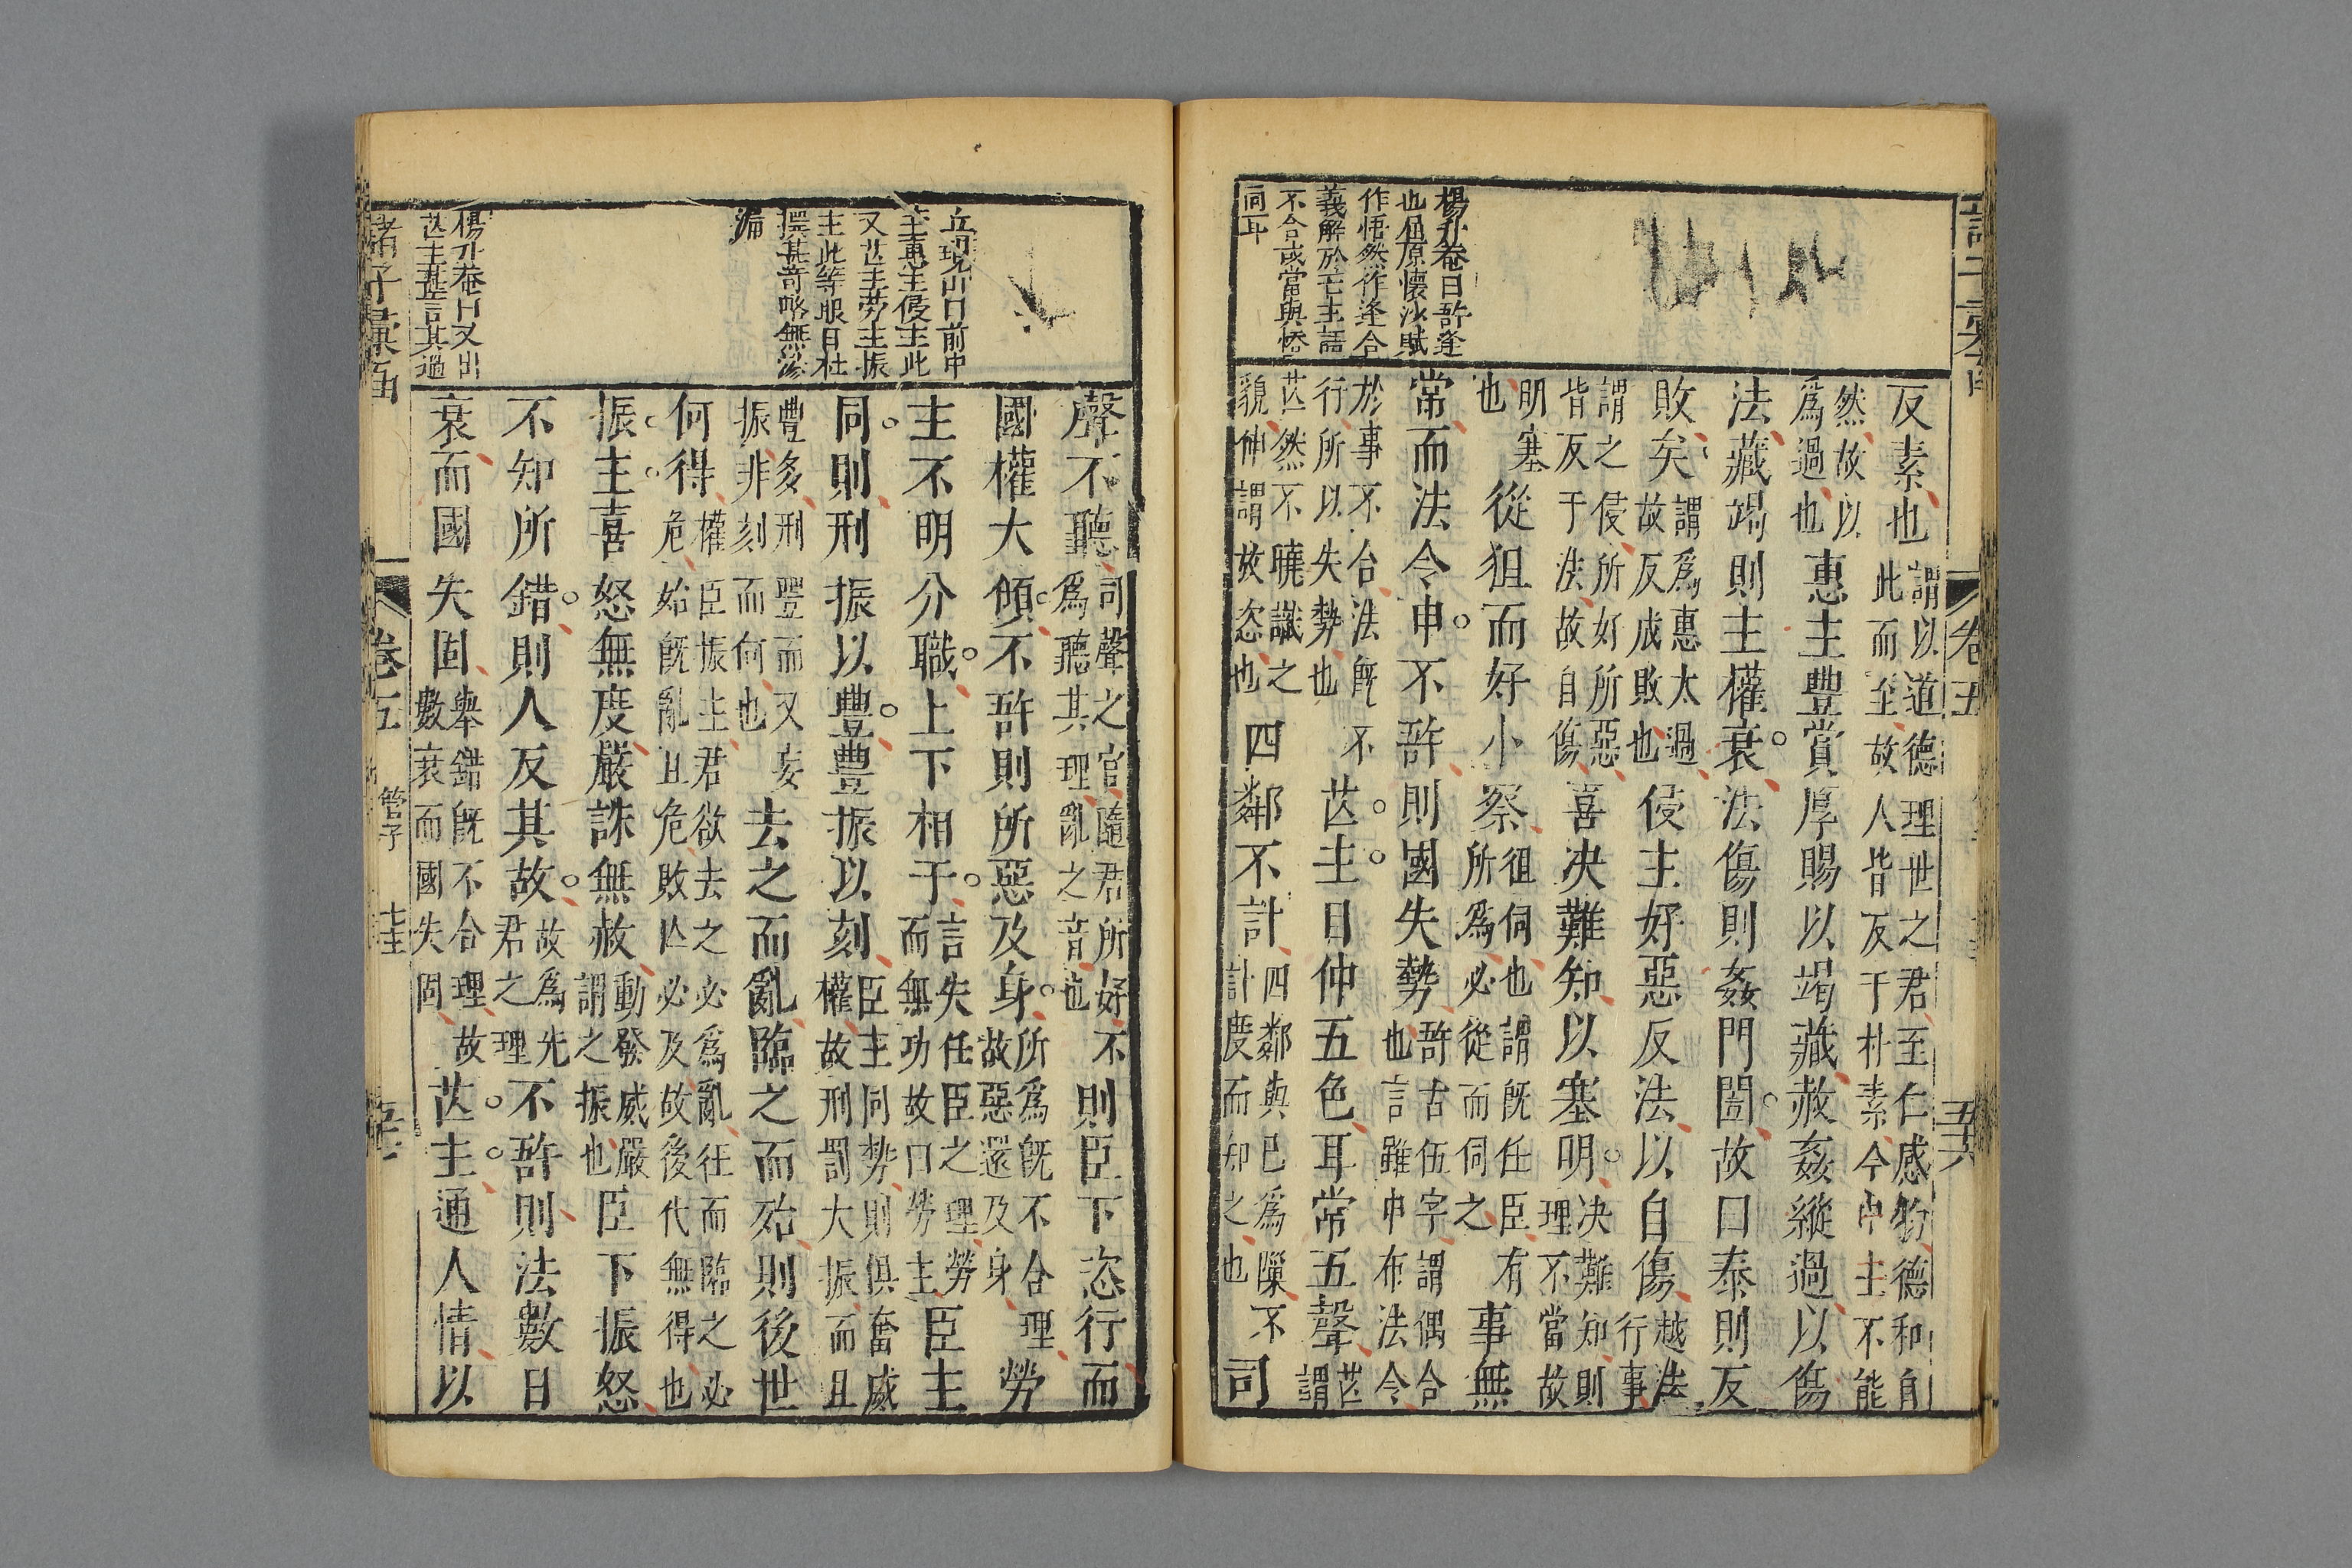 卷五
五十六
楊升菴曰訝逢
也屈原懷沙賦
作悟然作逢合
義解於芒主語
不合或當與悟
同耳
反素也謂以道德理世之君至仁感物德和自此而至故人皆反于朴素今申主不能
然故以爲過也惠主豐賞厚賜以竭藏赦姦縱過以傷
法藏竭則主權衰法傷則姦門闓故曰泰則反
敗矣謂爲惠太過故反成敗也侵主好惡反法以自傷越法行事
謂之侵所好所惡皆反于法故自傷喜决難知以塞明决難知則理不當故
明塞也從狙而好小察狙伺也謂既任臣有所爲必從而伺之事無
常而法令申不訝則國失勢訝古伍字謂偶合也言雖申布法令
於事不合法既不行所以失勢也芒主目伸五色耳常五聲芒謂
芒然不曉識之貌伸謂故恣也四鄰不計四鄰與已爲隟不計度而知之也司
丘瓊山曰前申
主惠主侵主此
又芒主勞主振
主此等眼目杜
撰甚奇略無滲
漏
楊升菴曰又出
芒主甚言其過
聲不聽司聲之官隨君所好不爲聽其理亂之音也則臣下恣行而
國權大傾不訝則所惡及身所爲既不合理故惡還及身勞
主不明分職上下相于言失任臣之理勞而無功故曰勞主臣主
同則刑振以豐豐振以刻臣主同勢則俱奮威權故刑罰大振而且
豐多刑豐而又妄振非刻而何也去之而亂臨之而殆則後世
何得權臣振主君欲去之必爲亂往而臨之必危殆既亂且危敗亡必及故後代無得也
振主喜怒無度嚴誅無赦動發威嚴謂之振也臣下振怒
不知所錯則人反其故故爲先君之理不訝則法數日
衰而國失固舉錯既不合理故數衰而國失固芒主通人情以
諸子彙函
卷五
管子